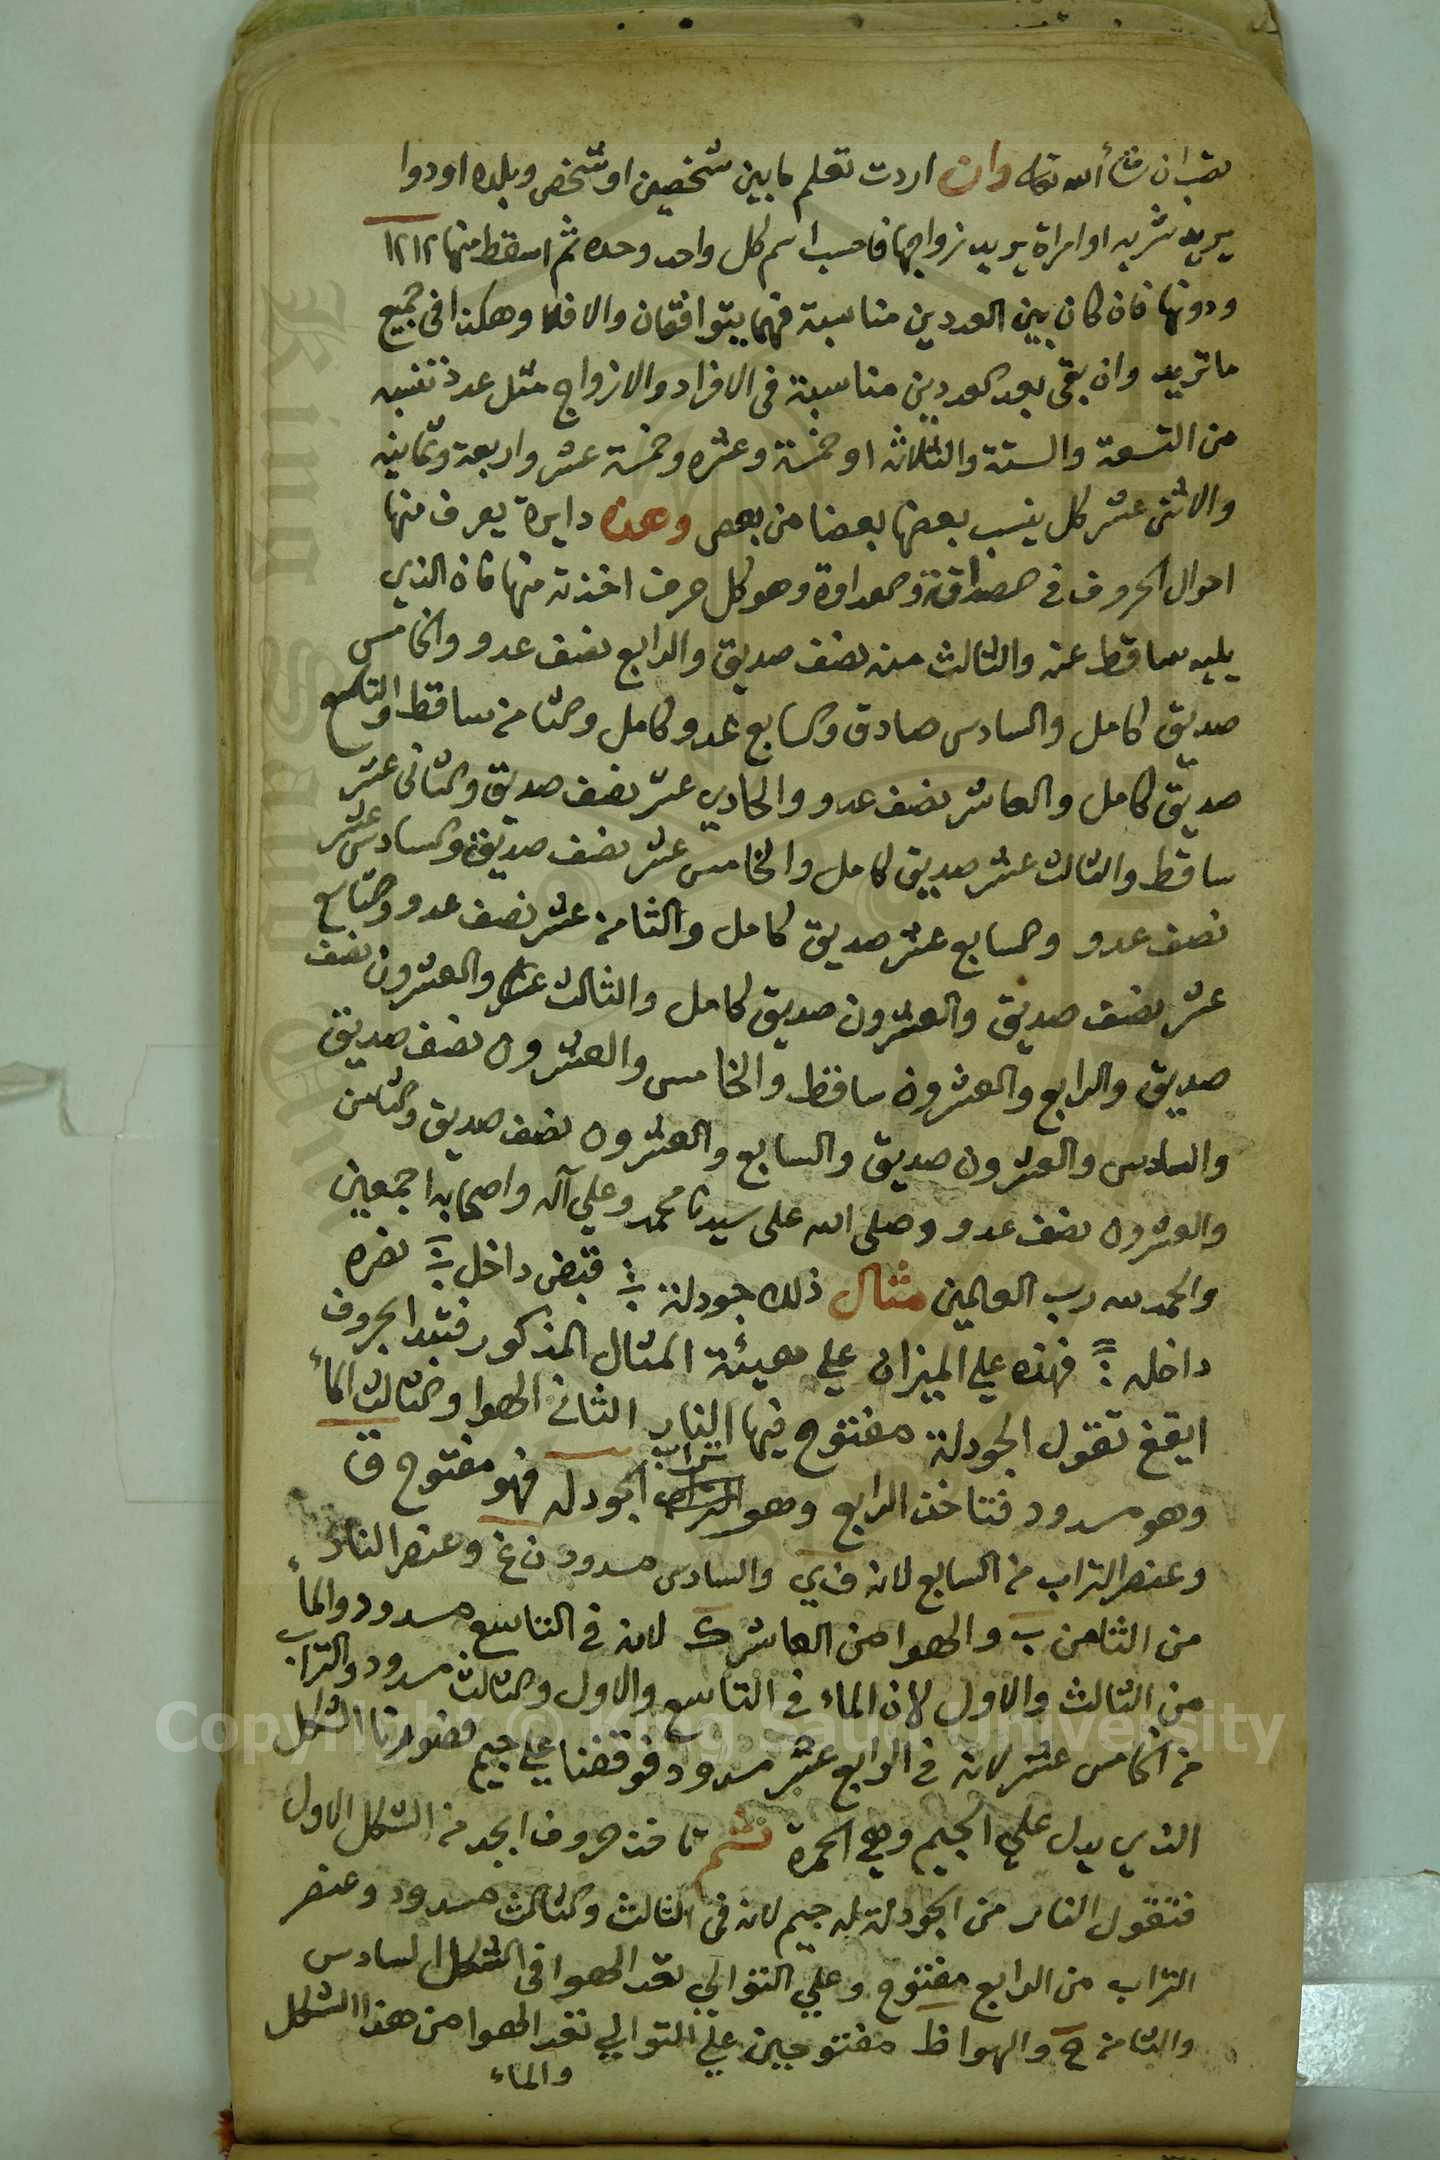 تصب ان شاء الله تعالى وان اردت تعلم ما بين شخصين او شخص وبلده او دوا
يريد شربه او امراة يريد زواجها فاحسب اسم كل واحد وحده ثم اسقط منها ١٢ ١٢
ودونها فان كان بين العددين مناسبة فهما يتوافقان والا فلا وهكذا في جميع
ما تريد وان بقي بعد العددين مناسبة في الافراد والازواج مثل عدة تنسبه
من التسعة والستة والثلاثه او خمسة وعشره وخمسة عشر واربعة وثمانيه
والاثنى عشر كل ينسب بعضها بعضا من بعض وهذه دايرة يعرف منها
احوال الحروف في الصداقة والعداوة وهو كل حرف اخذته منها فان الذي
يليه ساقط عنه والثالث منه نصف صديق والرابع نصف عدو والخامس
صديق كامل والسادس صادق والسابع عدو كامل والثامن ساقط والتاسع
صديق كامل والعاشر نصف عدو والحادي عشر نصف صديق والثانى عشر
ساقط والثالث عشر صديق كامل والخامس عشر نصف صديق والسادس عشر
نصف عدو والسابع عشر صديق كامل والثامن عشر نصف عدو والتاسع
عشر نصف صديق والعشرون صديق كامل والثالث عشر والعشرون نصف
صديق والرابع والعشرون ساقط والخامس والعشرون نصف صديق
والسادس والعشرون صديق والسابع والعشرون نصف صديق والثامن
والعشرون نصف عدو وصلى الله على سيدنا محمد وعلي آله واصحابه اجمعين
والحمد لله رب العالمين مثال ذلك جودلة قبض داخل نصره
داخله فهذه علي الميزان علي هيئة المثال المذكور فتعد الحروف
ايقغ تقول الجودلة مفتوح فيها النار الثاني الهوا والثالث الماء
وهو مسدود فتاخذ الرابع وهو تراب الجودله فهو مفتوح ق
وعنصر التراب من السابع لانه في والسادس مسدود ن غ وعنصر النار
من الثامن ب والهوا من العاشر ك لانه في التاسع مسدود والماء
من الثالث والاول لان الماء في التاسع والاول والثالث مسدود والتراب
من الخامس عشر لانه في الرابع عشر مسدود فوقفنا علي جيم فصورنا الشكل
الذي يدل علي الجيم وهي الحمرة ثم تاخذ حروف ابجد من الشكل الاول
فتقول النار من الجودلة له جيم لانه في الثالث والثالث مسدود وعنصر
التراب من الرابع مفتوح وعلي التوالي تعد الهوا في الشكل السادس
والثامن ح والهوا ط مفتوحين علي التوالي تعد الهوا من هذا الشكل
والماء
Copyright © King Saud University
King Saud University